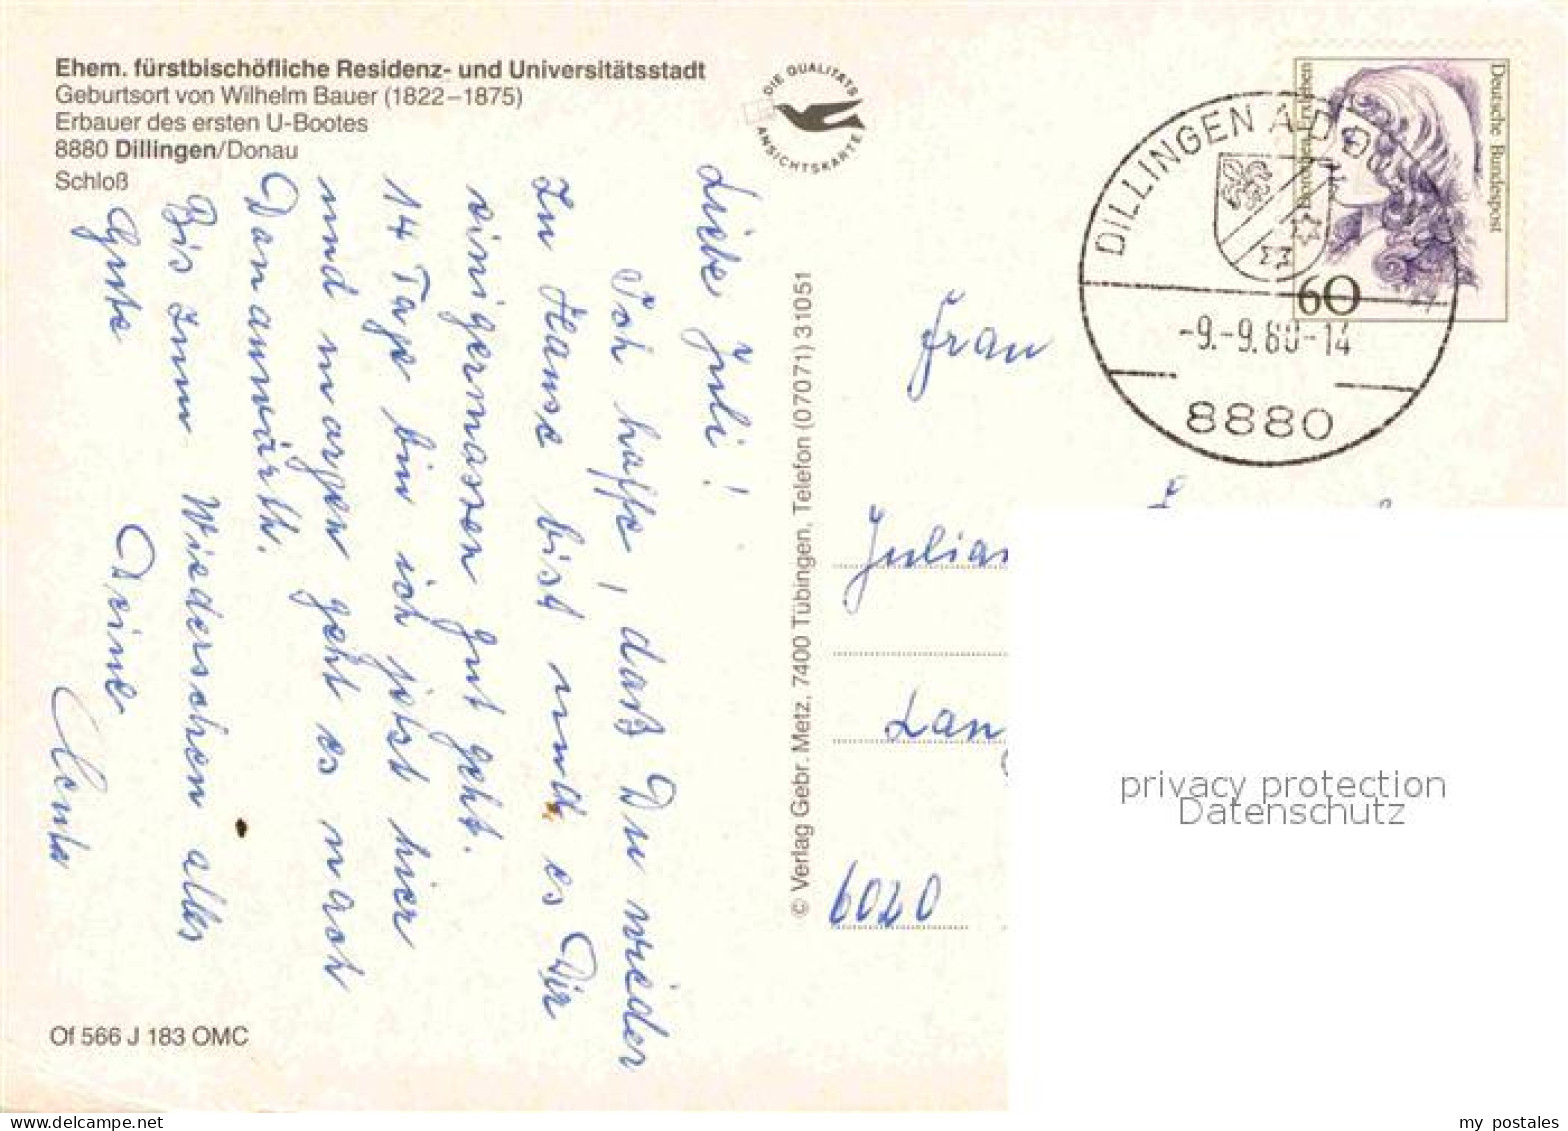 Ehem. fürstbischöfliche Residenz- und Universitätsstadt
Geburtsort von Wilhelm Bauer (1822–1875)
Erbauer des ersten U-Bootes
8880 Dillingen/Donau
Schloß
DIE QUALITÄTS
ANSICHTSKARTE
Liebe Juli!
Ich hoffe, daß Du wieder
zu Hause bist und es Dir
einigermassen gut geht.
14 Tage bin ich jetzt hier
und morgen geht es nach
Donauwörth.
Bis zum Wiedersehen alles
Gute
Deine
© Verlag Gebr. Metz, 7400 Tübingen, Telefon (07071) 31051
Deutsche Bundespost
60
DILLINGEN A.D.
-9.-9.80-14
8880
Frau
6020
privacy protection
Datenschutz
Of 566 J 183 OMC
my postales